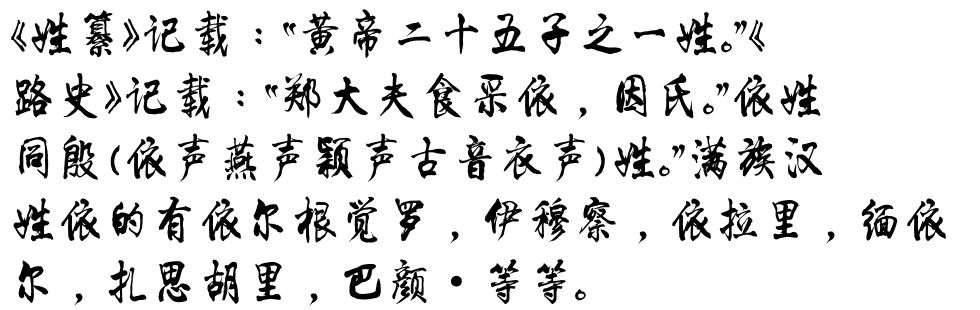 《姓纂》记载："黄帝二十五子之一姓。"《
路史》记载："郑大夫食采依，因氏。"依姓
同殷(依声燕声颖声古音衣声)姓。"满族汉
姓依的有依尔根觉罗，伊穆察，依拉里，缅依
尔，扎思胡里，巴颜·等等。